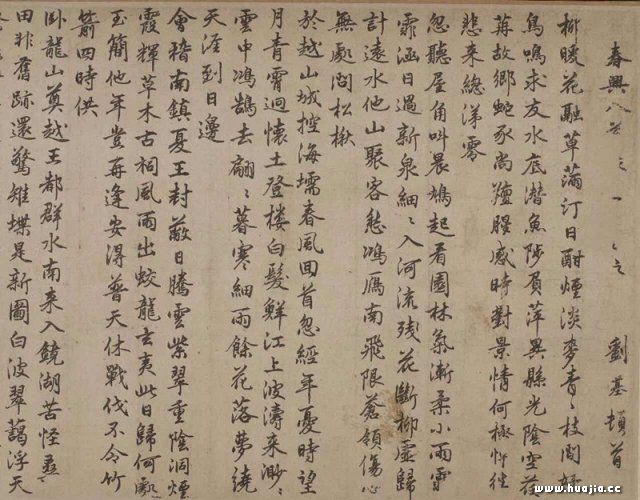 春興八首
劉基頓首
柳暖花融草滿汀日酣煙淡麥青々枝間
鳥鳴求友水底潛魚陟負萍異縣光陰空荏
苒故鄉蛇豕尚羶腥感時對景情何極忤往
悲來總涕零
忽聽屋角叫晨鳩起看園林氣漸柔小雨霏
霏涵日過新泉細々入河流殘花斷柳虛歸
計遠水他山聚客愁鴻雁南飛限蒼嶺傷心
無處問松楸
於越山城控海壖春風回首忽經年憂時望
月青霄迥懷土登樓白髮鮮江上波濤來渺々
雲中鴻鵠去翩々暮寒細雨餘花落夢繞
天涯到日邊
會稽南鎮夏王封蔽日騰雲紫翠重陰洞煙
霞輝草木古祠風雨出蛟龍玄夷此日歸何處
玉簡他年豈再逢安得普天休戰伐不令竹
箭四時供
臥龍山奠越王都群水南來入鏡湖苦怪
田非舊跡還驚雉堞是新圖白波翠藹浮天
www.huajia.cc